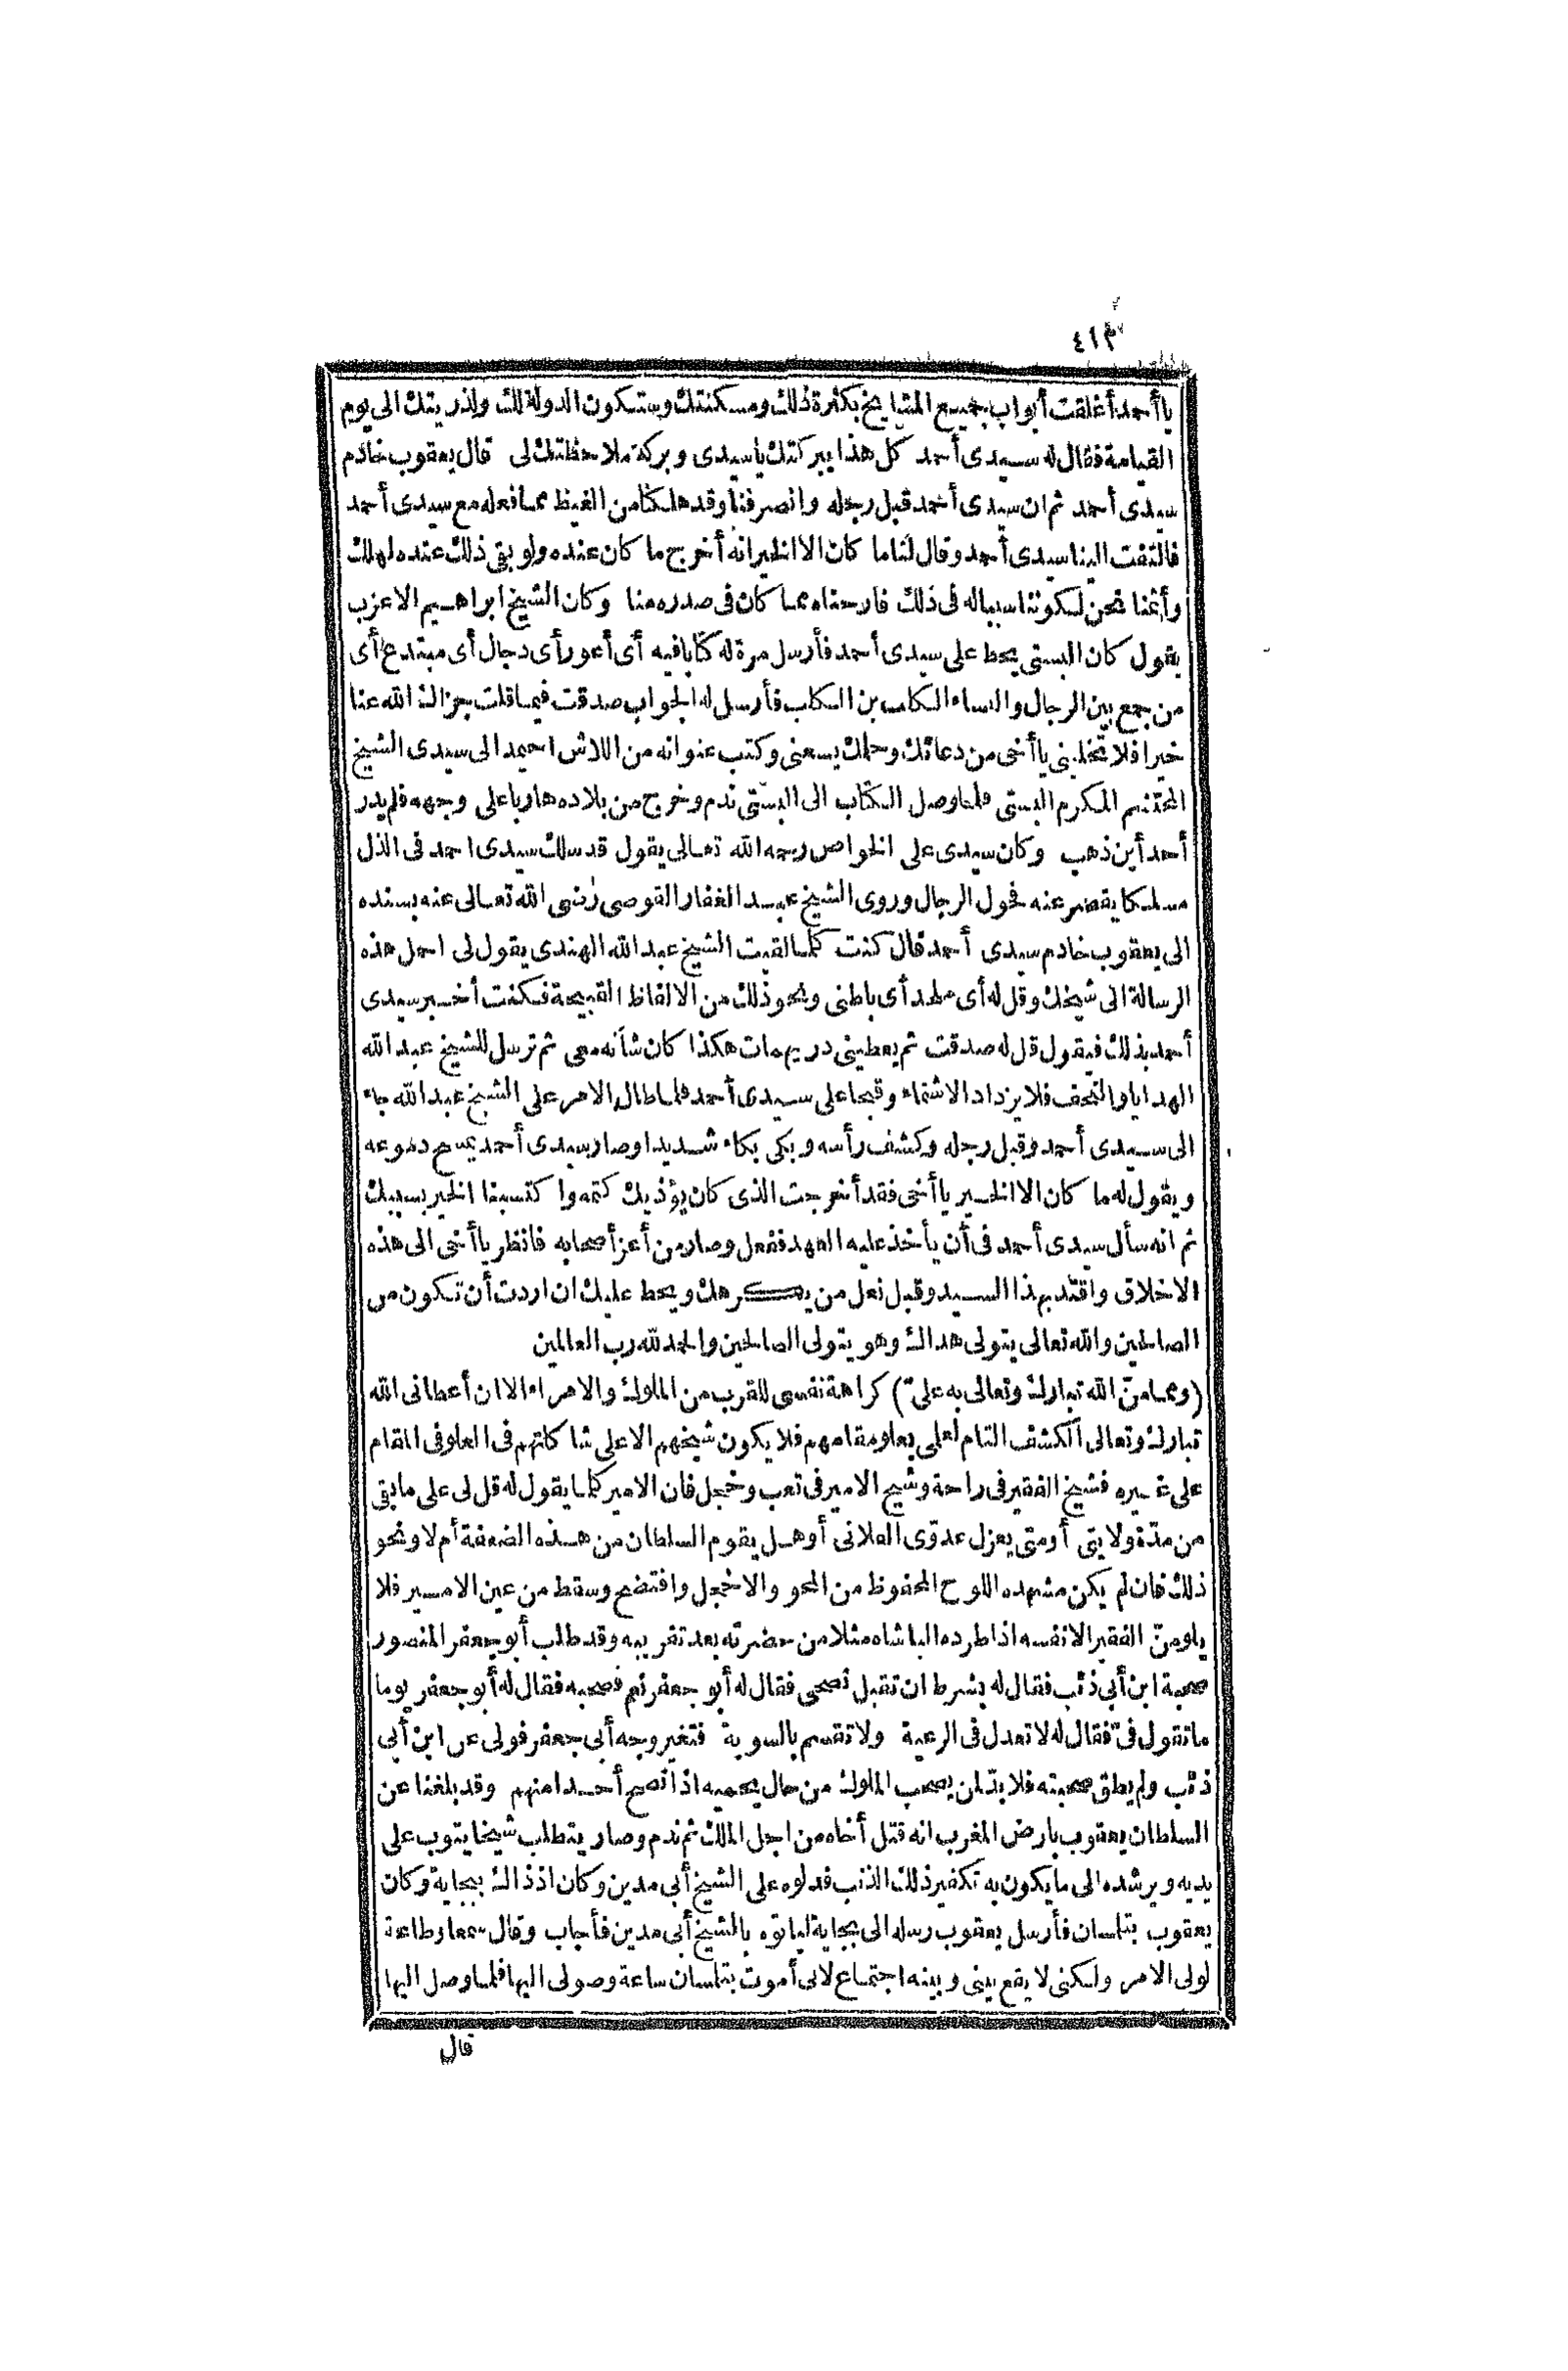 ٤١٣
يا أحمد أغلقت أبواب جميع المشايخ بكثرة ذلك ومسكنتك وستكون الدولة لك ولذريتك الى يوم
القيامة فقال له سيدى أحمد كل هذا ببركتك يا سيدى وبركة ملاحظتك لى قال يعقوب خادم
سيدى أحمد ثم ان سيدى أحمد قبل رجله وانصرفنا وقد هلكنا من الغيظ مما فعله مع سيدى أحمد
فالتفت الينا سيدى أحمد وقال لنا ما كان الا الخير انه أخرج ما كان عنده ولو بقى ذلك عنده لهلك
وأثمنا نحن لكوننا سببا له فى ذلك فارحناه مما كان فى صدره منا وكان الشيخ ابراهيم الاعزب
يقول كان البستى يحط على سيدى أحمد فأرسل مرة له كتابا فيه أى أعور أى دجال أى مبتدع أى
من جمع بين الرجال والنساء الكلب بن الكلب فأرسل له الجواب صدقت فيما قلت جزاك الله عنا
خيرا فلا تخلينى يا أخى من دعائك وحلمك يسعنى وكتب عنوانه من اللاش احيمد الى سيدى الشيخ
المحتشم المكرم البستى فلما وصل الكتاب الى البستى ندم وخرج من بلاده هاربا على وجهه فلم يدر
أحد أين ذهب وكان سيدى على الخواص رحمه الله تعالى يقول قد سلك سيدى احمد فى الذل
مسلكا يقصر عنه فحول الرجال وروى الشيخ عبد الغفار القوصى رضى الله تعالى عنه بسنده
الى يعقوب خادم سيدى أحمد قال كنت كلما لقيت الشيخ عبد الله الهندى يقول لى احمل هذه
الرسالة الى شيخك وقل له أى ملحد أى باطنى ونحو ذلك من الالفاظ القبيحة فكنت أخبر سيدى
أحمد بذلك فيقول قل له صدقت ثم يعطينى دريهمات هكذا كان شأنه معى ثم ترسل للشيخ عبد الله
الهدايا والتحف فلا يزداد الا شتما وقبحا على سيدى أحمد فلما طال الامر على الشيخ عبد الله جاء
الى سيدى أحمد وقبل رجله وكشف رأسه وبكى بكاء شديدا وصار سيدى أحمد يمسح دموعه
ويقول له ما كان الا الخير يا أخى فقد أخرجت الذى كان يؤذيك كتمه واكتسبنا الخير بسببك
ثم انه سأل سيدى أحمد فى أن يأخذ عليه العهد ففعل وصار من أعز أصحابه فانظر يا أخى الى هذه
الاخلاق واقتد بهذا السيد وقبل نعل من يكرهك ويحط عليك ان اردت أن تكون من
الصالحين والله تعالى يتولى هداك وهو يتولى الصالحين والحمد لله رب العالمين
(ومما منّ الله تبارك وتعالى به علىّ) كراهة نفسى للقرب من الملوك والامراء الا ان أعطانى الله
تبارك وتعالى الكشف التام لعلمى بعلو مقامهم فلا يكون شيخهم الا على شاكلتهم فى العلو فى المقام
على غيره فشيخ الفقير فى راحة وشيخ الامير فى تعب وخجل فان الامير كلما يقول له قل لى على ما بقى
من مدّة ولايتى أو متى يعزل عدوّى الفلانى أو هل يقوم السلطان من هذه الضعفة أم لا ونحو
ذلك فان لم يكن مشهده اللوح المحفوظ من المحو والا خجل وافتضح وسقط من عين الامير فلا
يلومنّ الفقير الا نفسه اذا طرده الباشاه مثلا من حضرته بعد تقريبه وقد طلب أبو جعفر المنصور
صحبة ابن أبى ذئب فقال له بشرط ان تقبل نصحى فقال له أبو جعفر نعم فصحبه فقال له أبو جعفر يوما
ما تقول فىّ فقال له لا تعدل فى الرعية ولا تقسم بالسوية فتغير وجه أبى جعفر فولى عن ابن أبى
ذئب ولم يطق صحبته فلا بدّ لمن يصحب الملوك من حال يحميه اذا نصح أحدا منهم وقد بلغنا عن
السلطان يعقوب بارض المغرب انه قتل أخاه من اجل الملك ثم ندم وصار يتطلب شيخا يتوب على
يديه ويرشده الى ما يكون به تكفير ذلك الذنب فدلوه على الشيخ أبى مدين وكان اذ ذاك ببجاية وكان
يعقوب بتلمسان فأرسل يعقوب رسله الى بجاية لياتوه بالشيخ أبى مدين فأجاب وقال سمعا وطاعة
لولى الامر ولكنى لا يقع بينى وبينه اجتماع لانى أموت بتلمسان ساعة وصولى اليها فلما وصل اليها
قال